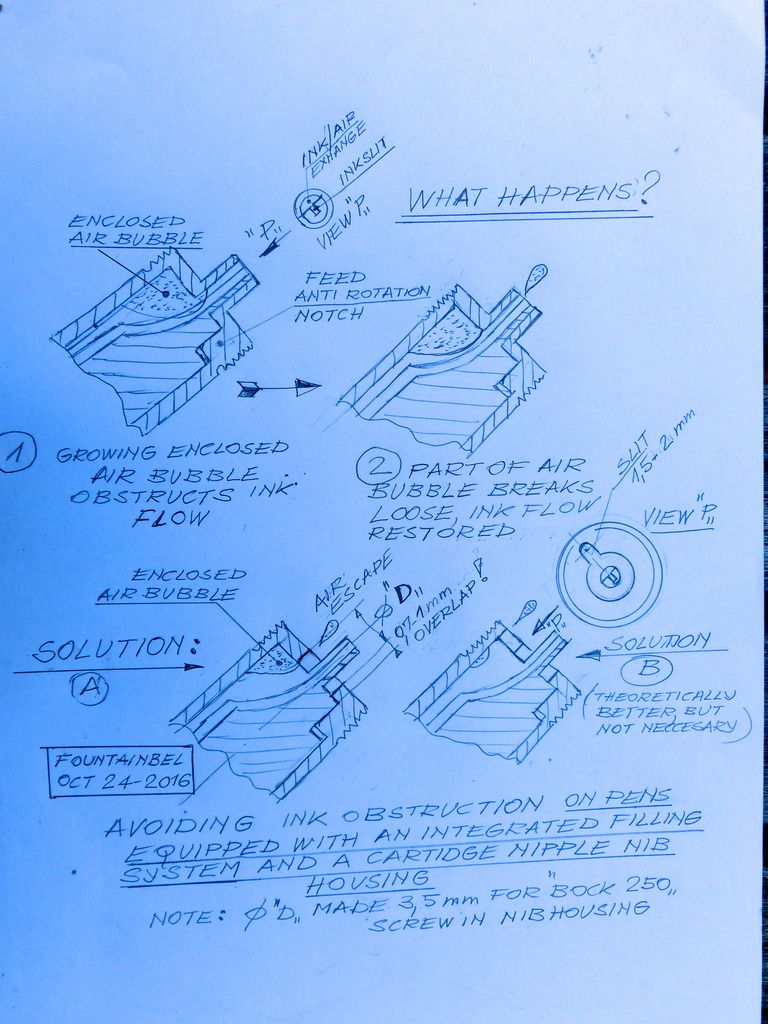 WHAT HAPPENS?
INK/AIR
EXHANGE
INKSLIT
VIEW "P„
"P„
ENCLOSED
AIR BUBBLE
FEED
ANTI ROTATION
NOTCH
1 GROWING ENCLOSED
AIR BUBBLE
OBSTRUCTS INK
FLOW
2 PART OF AIR
BUBBLE BREAKS
LOOSE, INK FLOW
RESTORED
SLIT
1,5÷2 mm
VIEW "P„
ENCLOSED
AIR BUBBLE
AIR
ESCAPE
Ø "D„
0,7-1mm
OVERLAP!
"P„
SOLUTION:
A
SOLUTION
B
(THEORETICALLY
BETTER, BUT
NOT NECCESARY)
FOUNTAINBEL
OCT 24-2016
AVOIDING INK OBSTRUCTION ON PENS
EQUIPPED WITH AN INTEGRATED FILLING
SYSTEM AND A CARTIDGE NIPPLE NIB
HOUSING
NOTE: Ø "D„ MADE 3,5mm FOR "BOCK 250„
SCREW IN NIBHOUSING